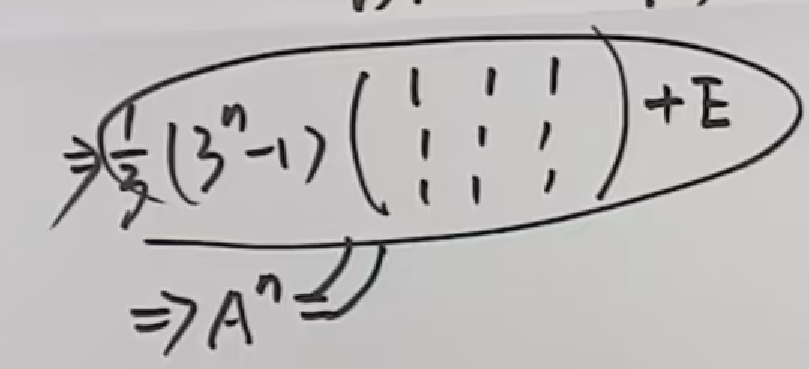 ⇒ 1/3 (3ⁿ-1) ( 1 1 1
1 1 1
1 1 1 ) + E
⇒ Aⁿ =